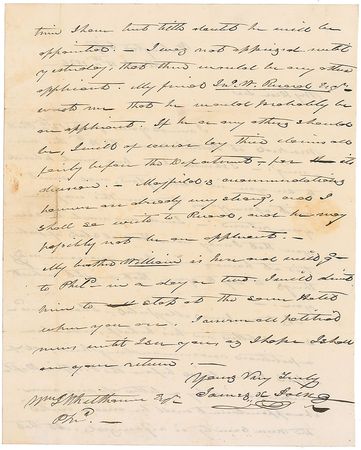 I have but little doubt he will be
appointed. - I was not apprized until
yesterday, that there would be any other
applicant. My friend Jno. W. Esqr.
wrote me that he would probably be
an applicant. If he or any others should
be, I will of course lay their claims all
fairly before the Department, for its
decision. - recommendations
however are already very strong, and I
shall so write to and he may
possibly not be an applicant. -
My brother William is here and will go
to Phila. in a day or two. I will direct
him to stop at the same Hotel
when you are. I reserve all political
news until I see you as I hope I shall
on your return. -
Yours Very Truly
James K. Polk
Wm Esqr.
Phila.